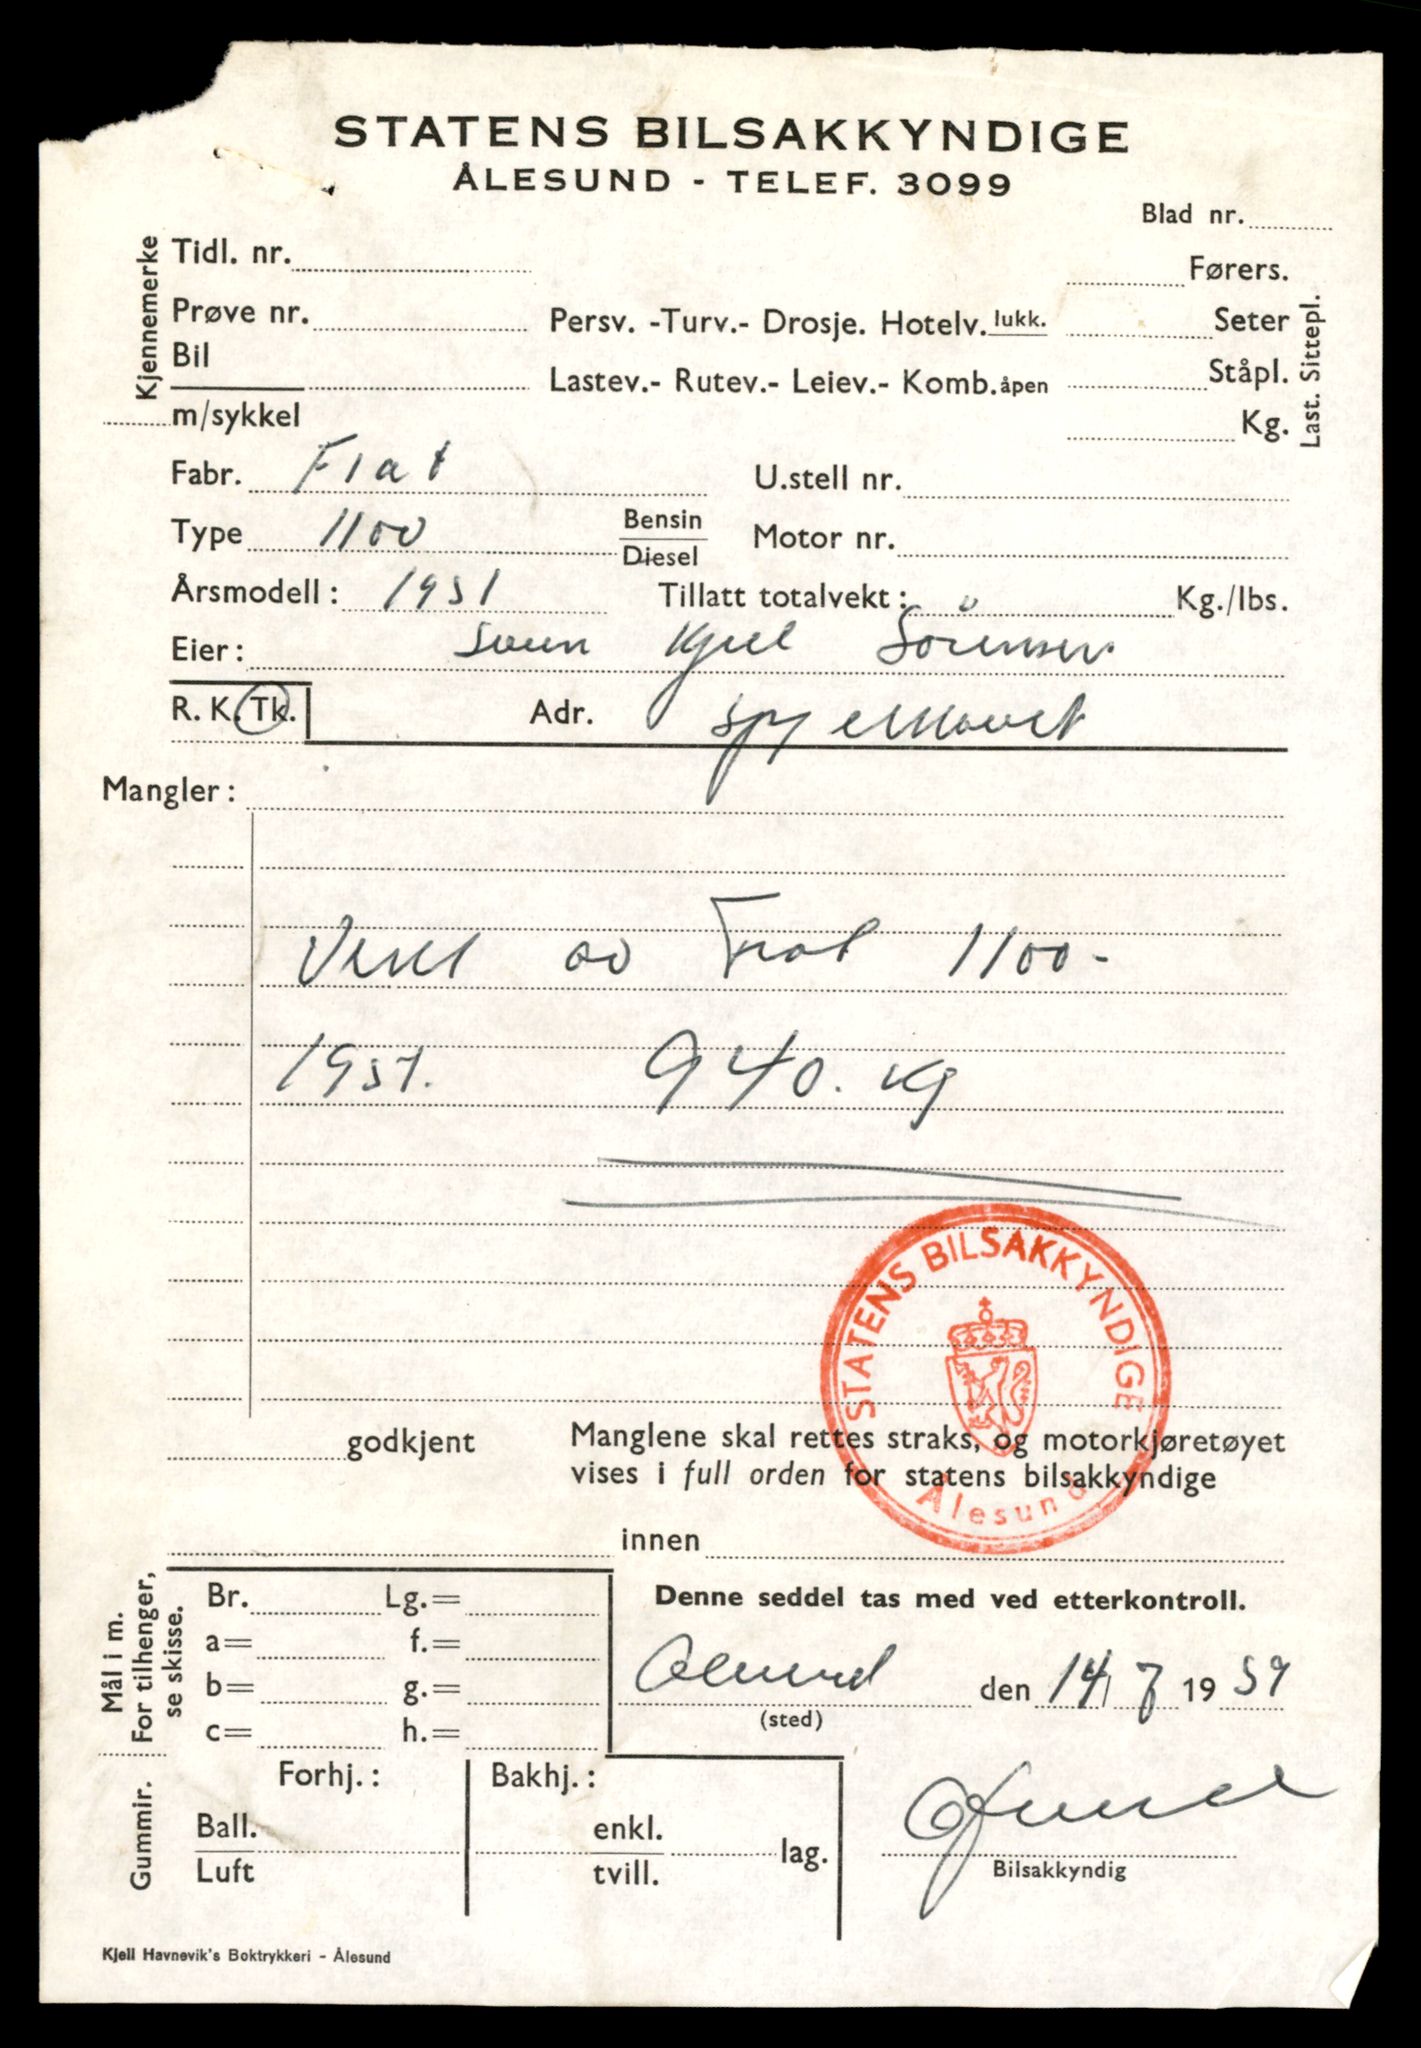 STATENS BILSAKKYNDIGE
ÅLESUND - TELEF. 3099
Blad nr.
Kjennemerke
Tidl. nr.
Førers.
Prøve nr.
Persv. -Turv.- Drosje. Hotelv. lukk.
Seter
Bil
Lastev.- Rutev.- Leiev.- Komb. åpen
Ståpl.
m/sykkel
Kg.
Last. Sittepl.
Fabr. Fiat
U.stell nr.
Type 1100
Bensin
Diesel
Motor nr.
Årsmodell: 1951
Tillatt totalvekt: Kg./lbs.
Eier: Svein Kjel Sörensen
R. K. Tk.
Adr. Spjelkavik
Mangler:
Vekt av Fiat 1100-
1951. 940. kg
STATENS BILSAKKYNDIGE
Ålesund
godkjent
Manglene skal rettes straks, og motorkjøretøyet
vises i full orden for statens bilsakkyndige
innen
Mål i m.
For tilhenger,
se skisse.
Br. Lg.=
a= f.=
b= g.=
c= h.=
Denne seddel tas med ved etterkontroll.
Ålesund den 14/7 1959
(sted)
Gummir.
Forhj.:
Bakhj.:
Ball.
Luft
enkl.
tvill.
lag.
Bilsakkyndig
Kjell Havnevik's Boktrykkeri - Ålesund